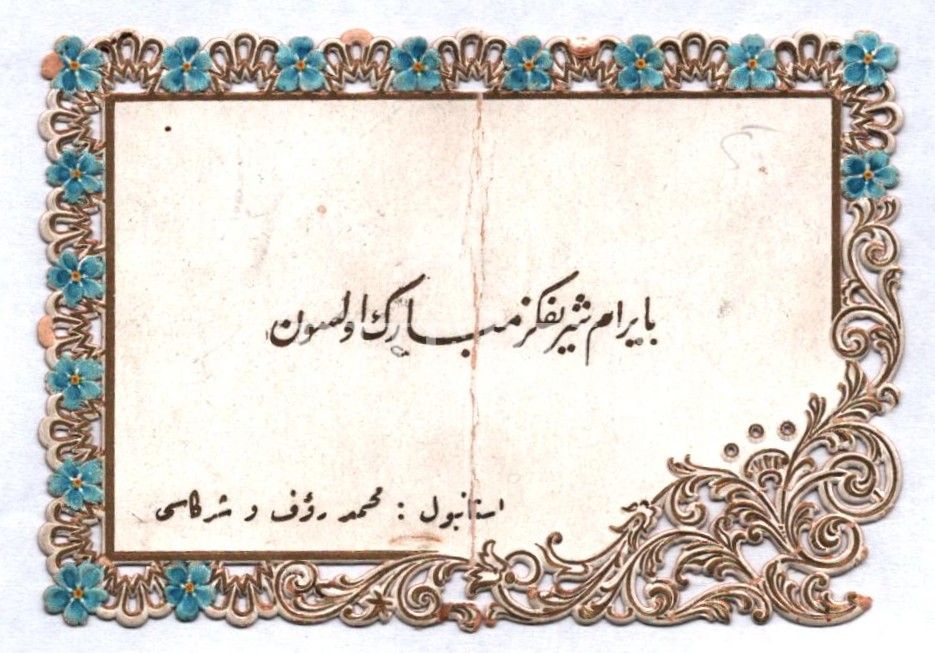 بايرام شريفكز مبارك اولسون
استانبول : محمد رؤف و شركاسى